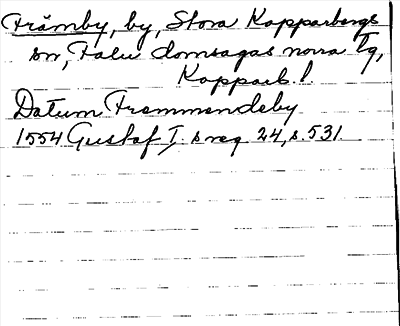 Främby, by, Stora Kopparbergs
sn, Falu domsagas norra tg,
Kopparb. l.
Datum Fremmendeby
1554 Gustaf I:s reg 24, s. 531.